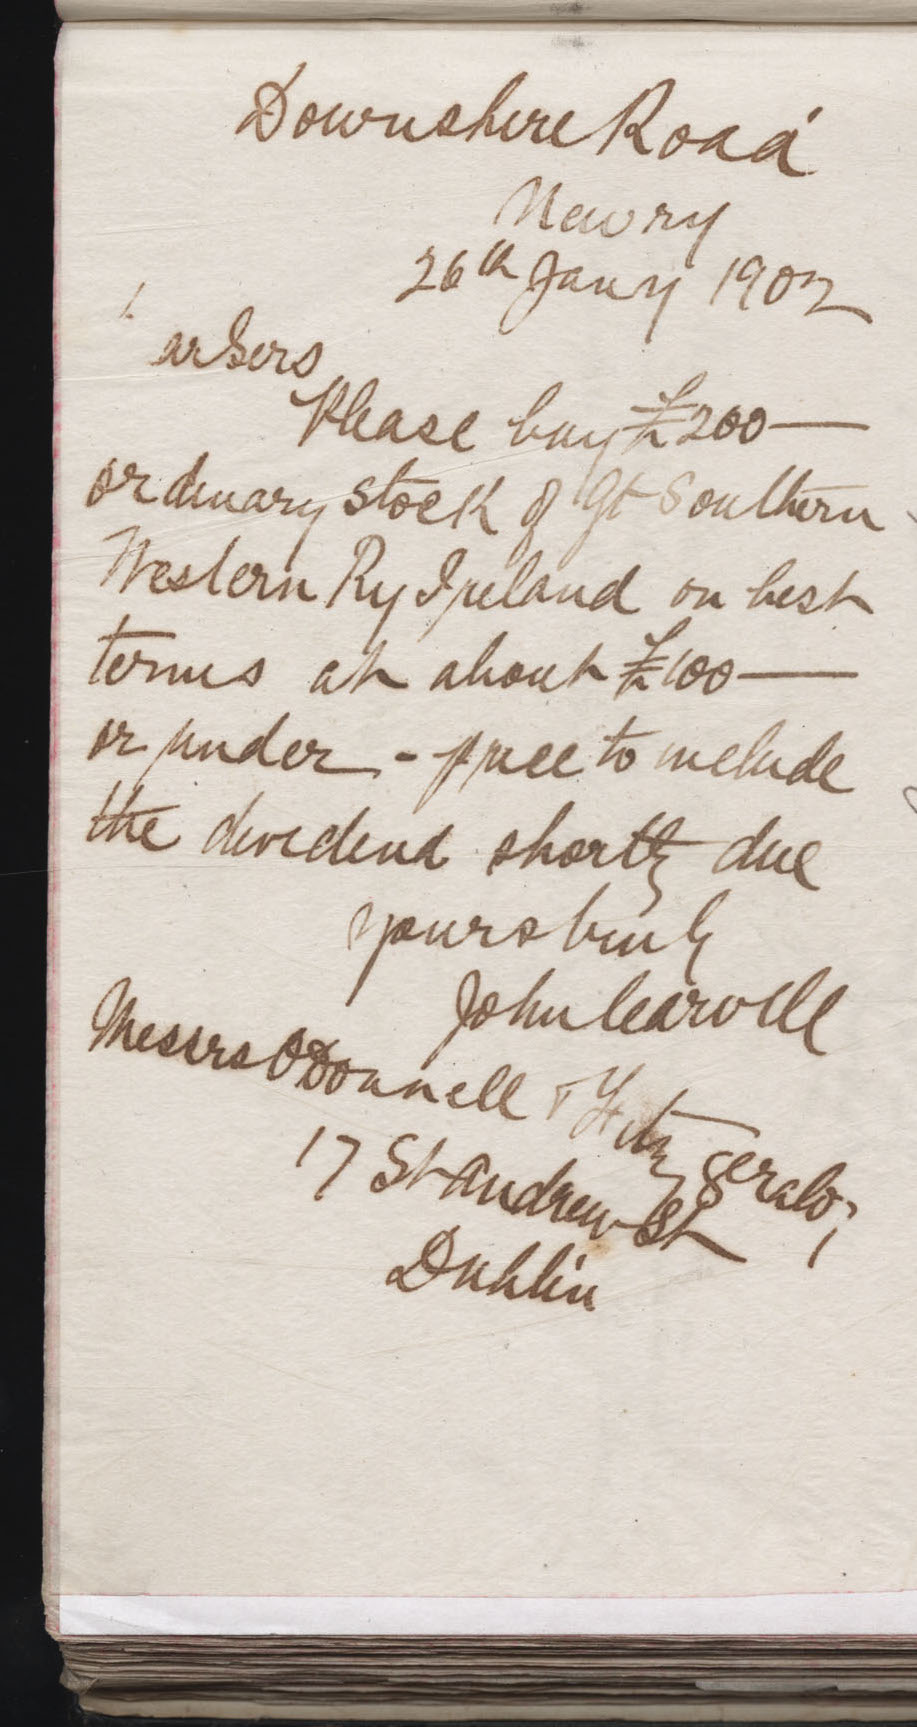 Downshire Road
Newry
26th Jany 1902
ar Sirs
Please buy £200—
ordinary stock of Gt Southern
Western Ry Ireland on best
terms at about £100—
or under - price to include
the dividend shortly due
yours truly
John Carvill
Messrs O'Donnell & Fitzgerald
17 St Andrew St
Dublin